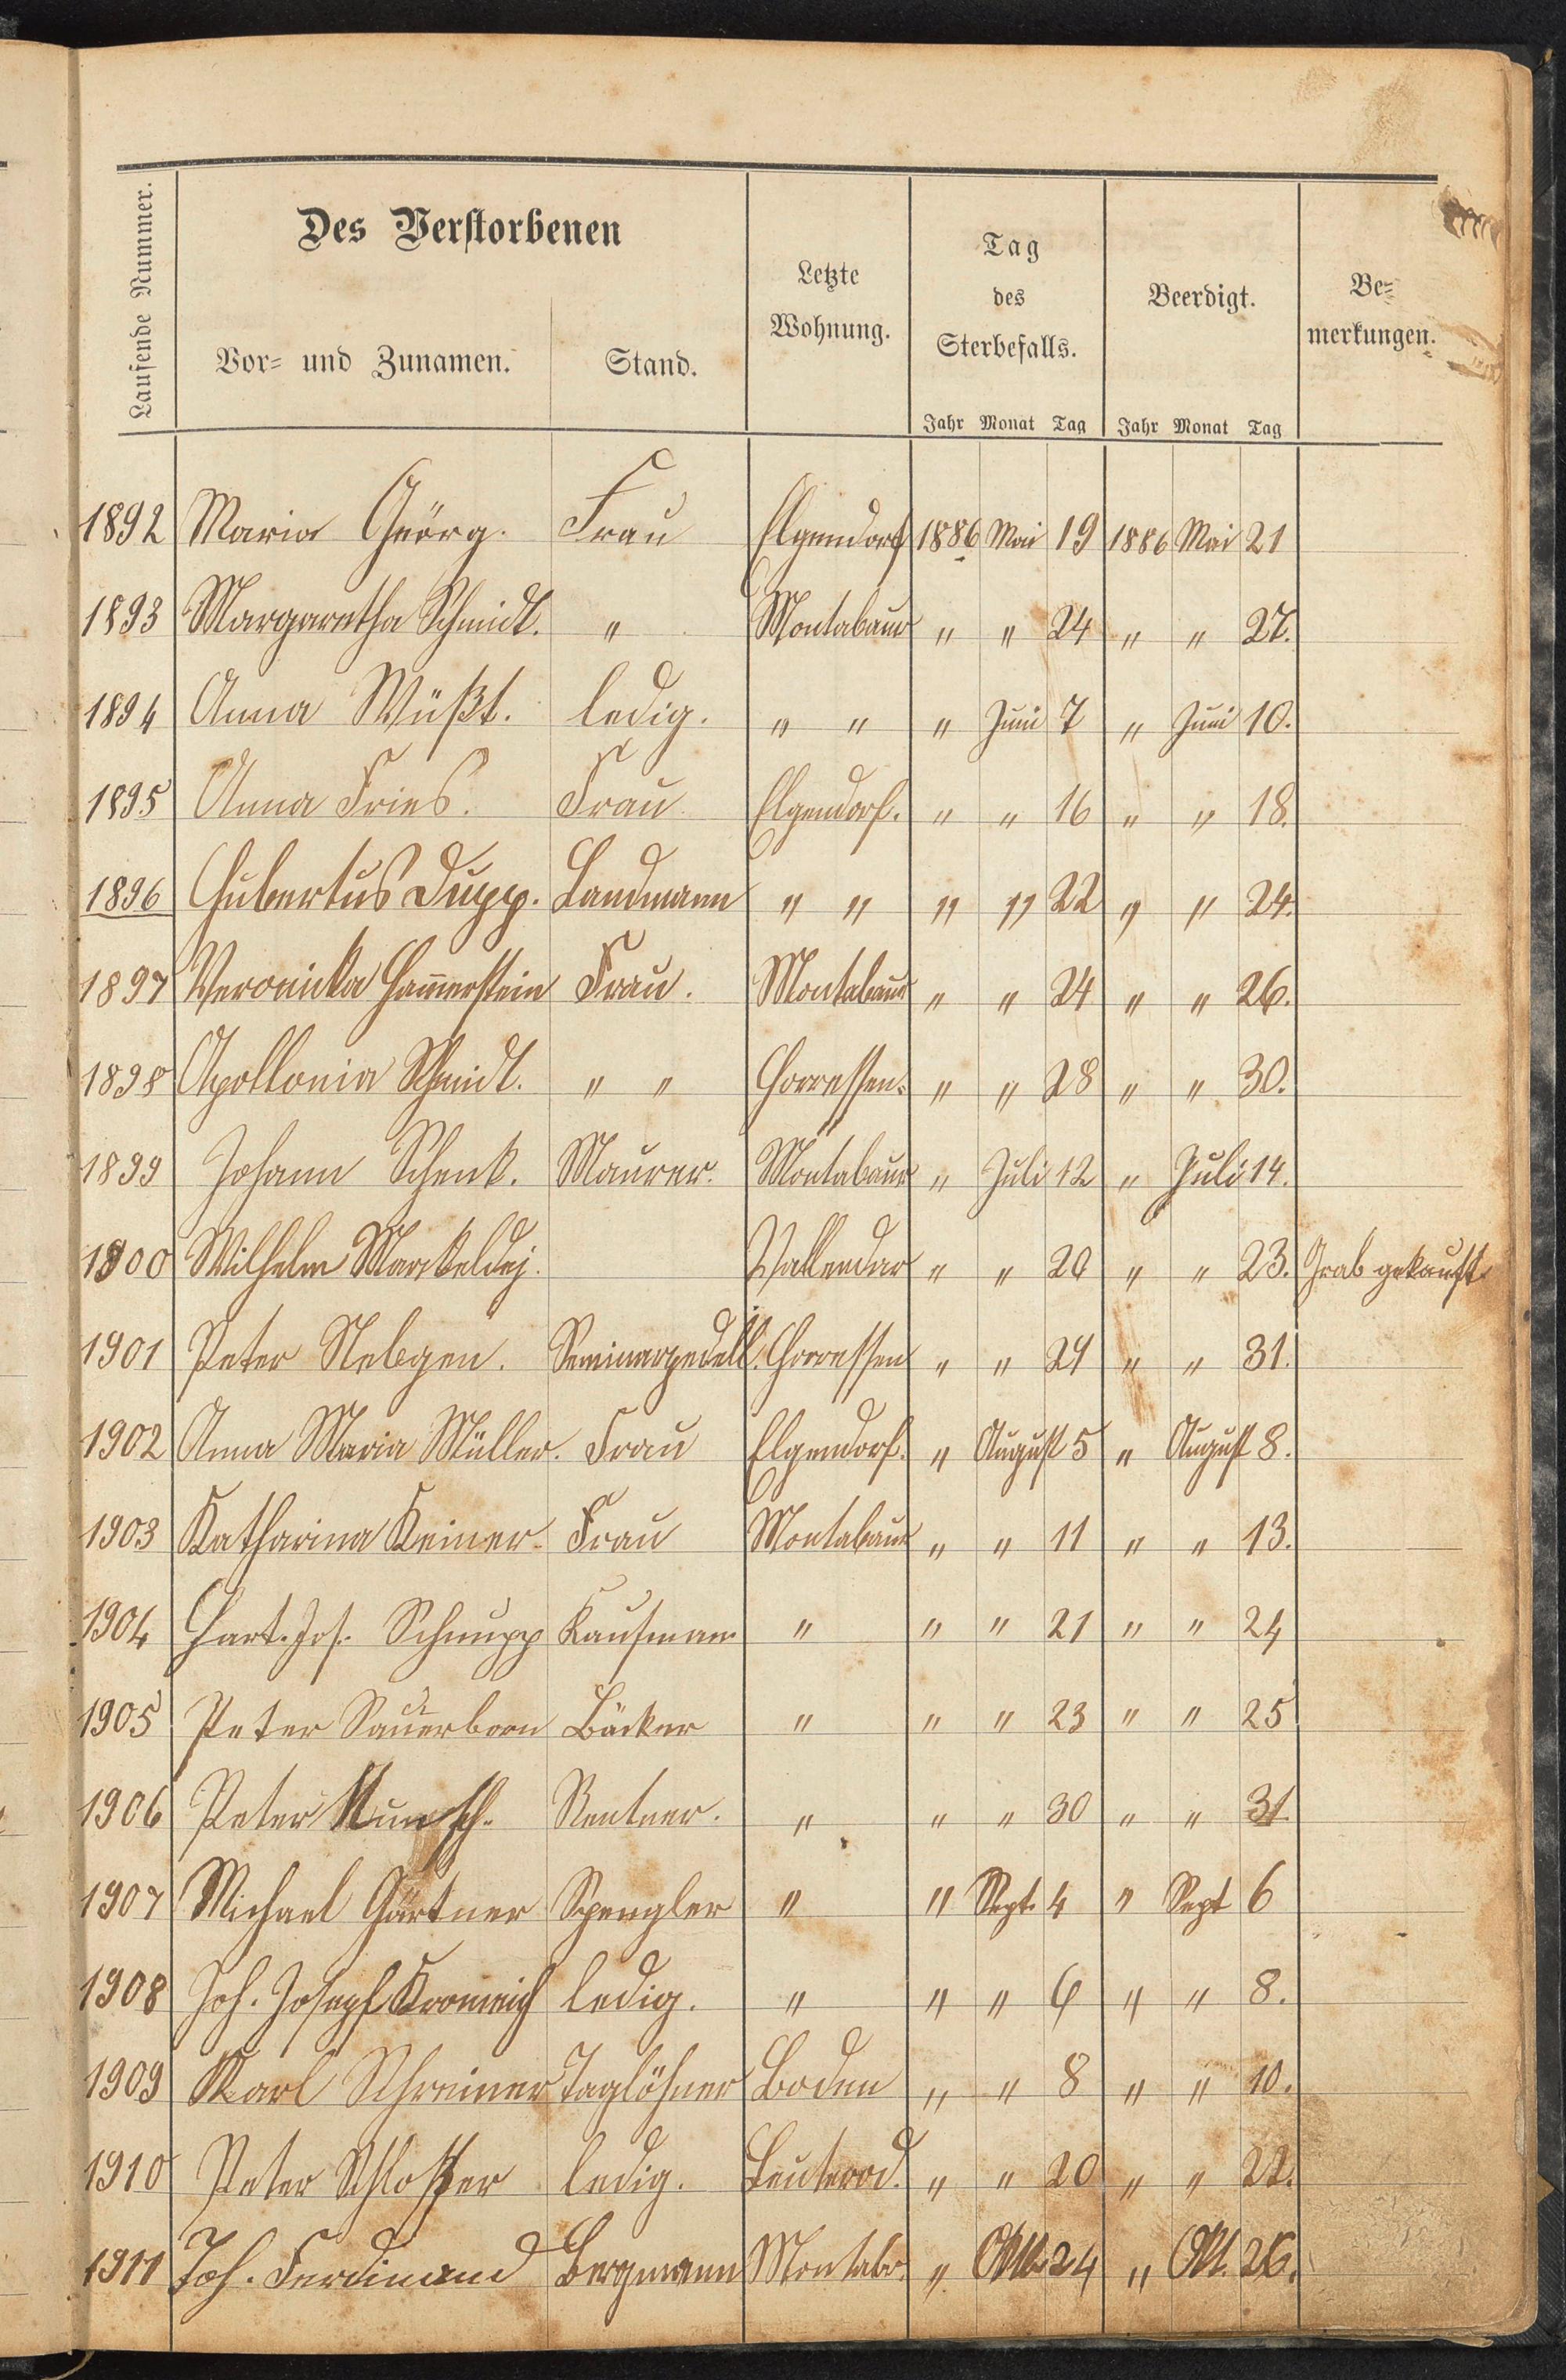 Laufende Nummer.
Des Verstorbenen
Vor- und Zunamen.
Stand.
Letzte
Wohnung.
Tag
des
Sterbefalls.
Jahr Monat Tag
Beerdigt.
Jahr Monat Tag
Be-
merkungen.
1892 Maria Georg. Frau Elgendorf 1886 Mai 19 1886 Mai 21
1893 Margaretha Schmidt. " Montabaur " " 24 " " 27.
1894 Anna Wüßt. ledig. " " " Juni 7 " Juni 10.
1895 Anna Fries. Frau Elgendorf. " " 16 " " 18.
1896 Hubertus Dupp. Landmann " " " " 22 " " 24.
1897 Veronicka Ham̄erstein Frau. Montabaur " " 24 " " 26.
1898 Apollonia Schmidt. " " Horressen. " " 28 " " 30.
1899 Johann Schenk. Maurer. Montabaur " Juli 12 " Juli 14.
1900 Wilhelm Marckeldej. Vallendar " " 20 " " 23. Grab gekauft
1901 Peter Nebgen. Seminarpedell. Horressen " " 29 " " 31.
1902 Anna Maria Müller. Frau Elgendorf. " August 5 " August 8.
1903 Katharina Keiner. Frau Montabaur " " 11 " " 13.
1904 Hart. Jos. Schnupp Kaufmann " " " 21 " " 24
1905 Peter Sauerborn Bäcker " " " 23 " " 25
1906 Peter Rentner. " " " 30 " " 31.
1907 Michael Gärtner Spengler " " Sept. 4 " Sept 6
1908 Joh. Joseph Kromeich ledig. " " " 6 " " 8.
1909 Karl Schreiner Taglöhner Boden " " 8 " " 10.
1910 Peter Schlosser ledig. Leuterod. " " 20 " " 22.
1911 Joh. Ferdinand Bergmann Montabr. " Okt. 24 " Okt. 26.